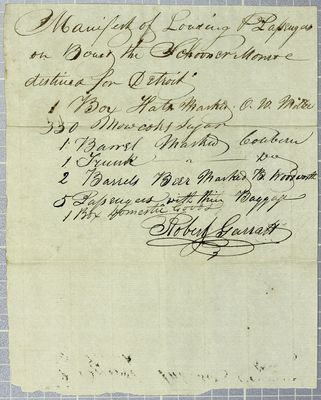 Manifest of Loading & Passengers
on Board the Schooner Monroe
destined for Detroit
1 Box Hats Marked O. W. Miller
330 Mowcoks Sugar
1 Barrel Marked Coburn
1 Trunk " Do
2 Barrels Beer Marked B Woodworth
5 Passengers with their Baggage
1 Box Domestic Goods
Robert Garratt